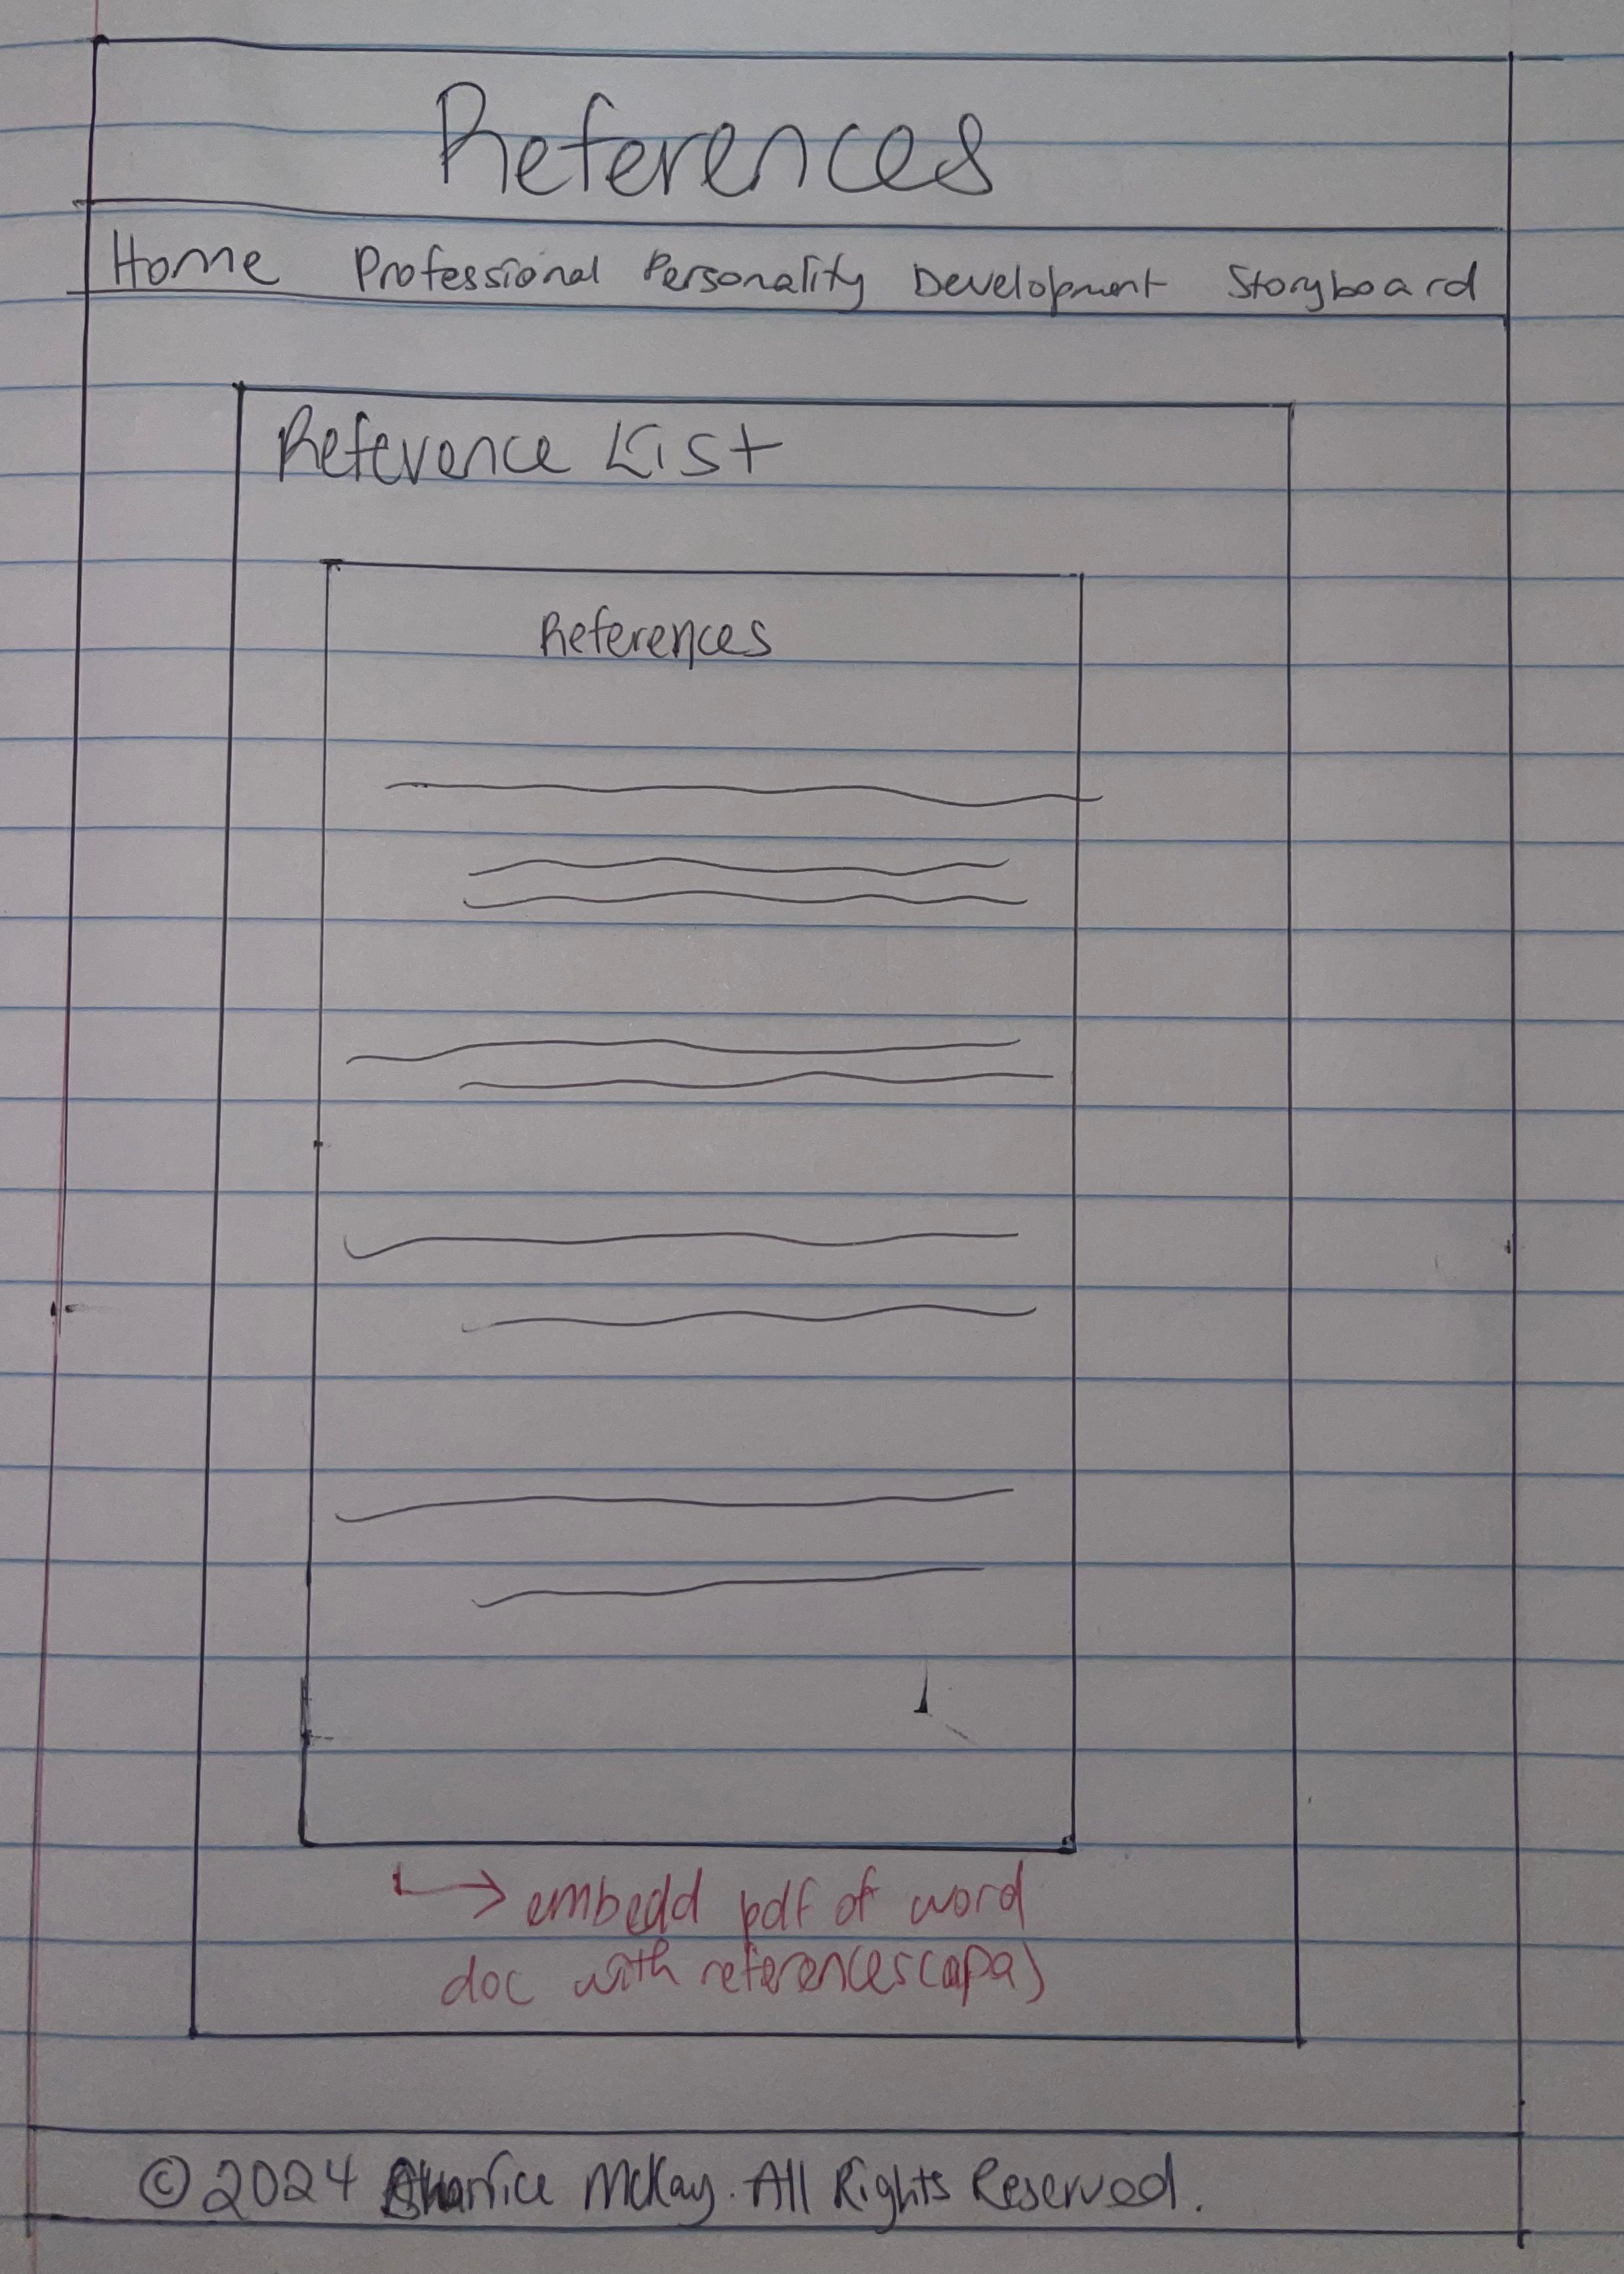 References
Home Professional Personality Development Storyboard
Reference List
References
embedd pdf of word
doc with references(apa)
© 2024 Sharice McKay. All Rights Reserved.